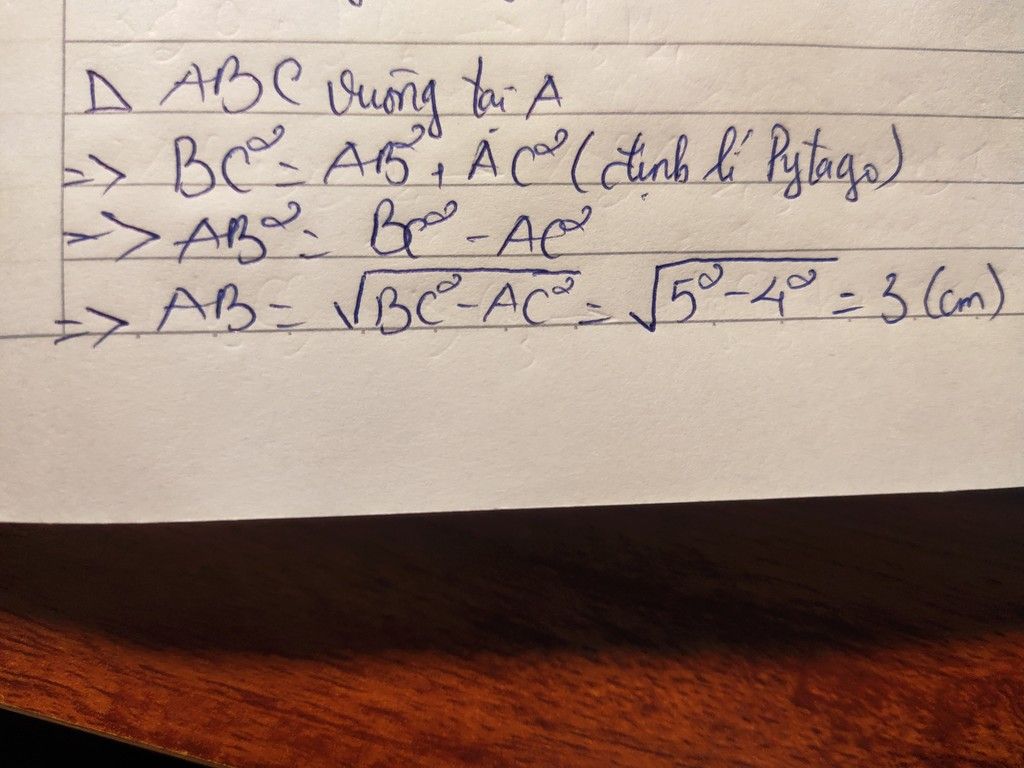 Δ ABC vuông tại A
=> BC² = AB² + AC² (định lí Pytago)
=> AB² = BC² - AC²
=> AB = √(BC² - AC²) = √(5² - 4²) = 3 (cm)